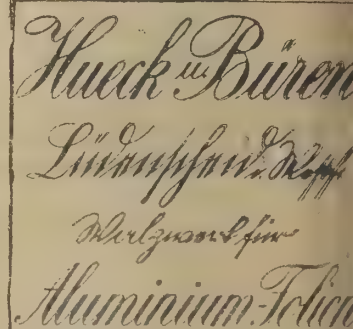 Hueck u. Büren
Lüdenscheid. Westf.
Walzwerk für
Aluminium-Folien